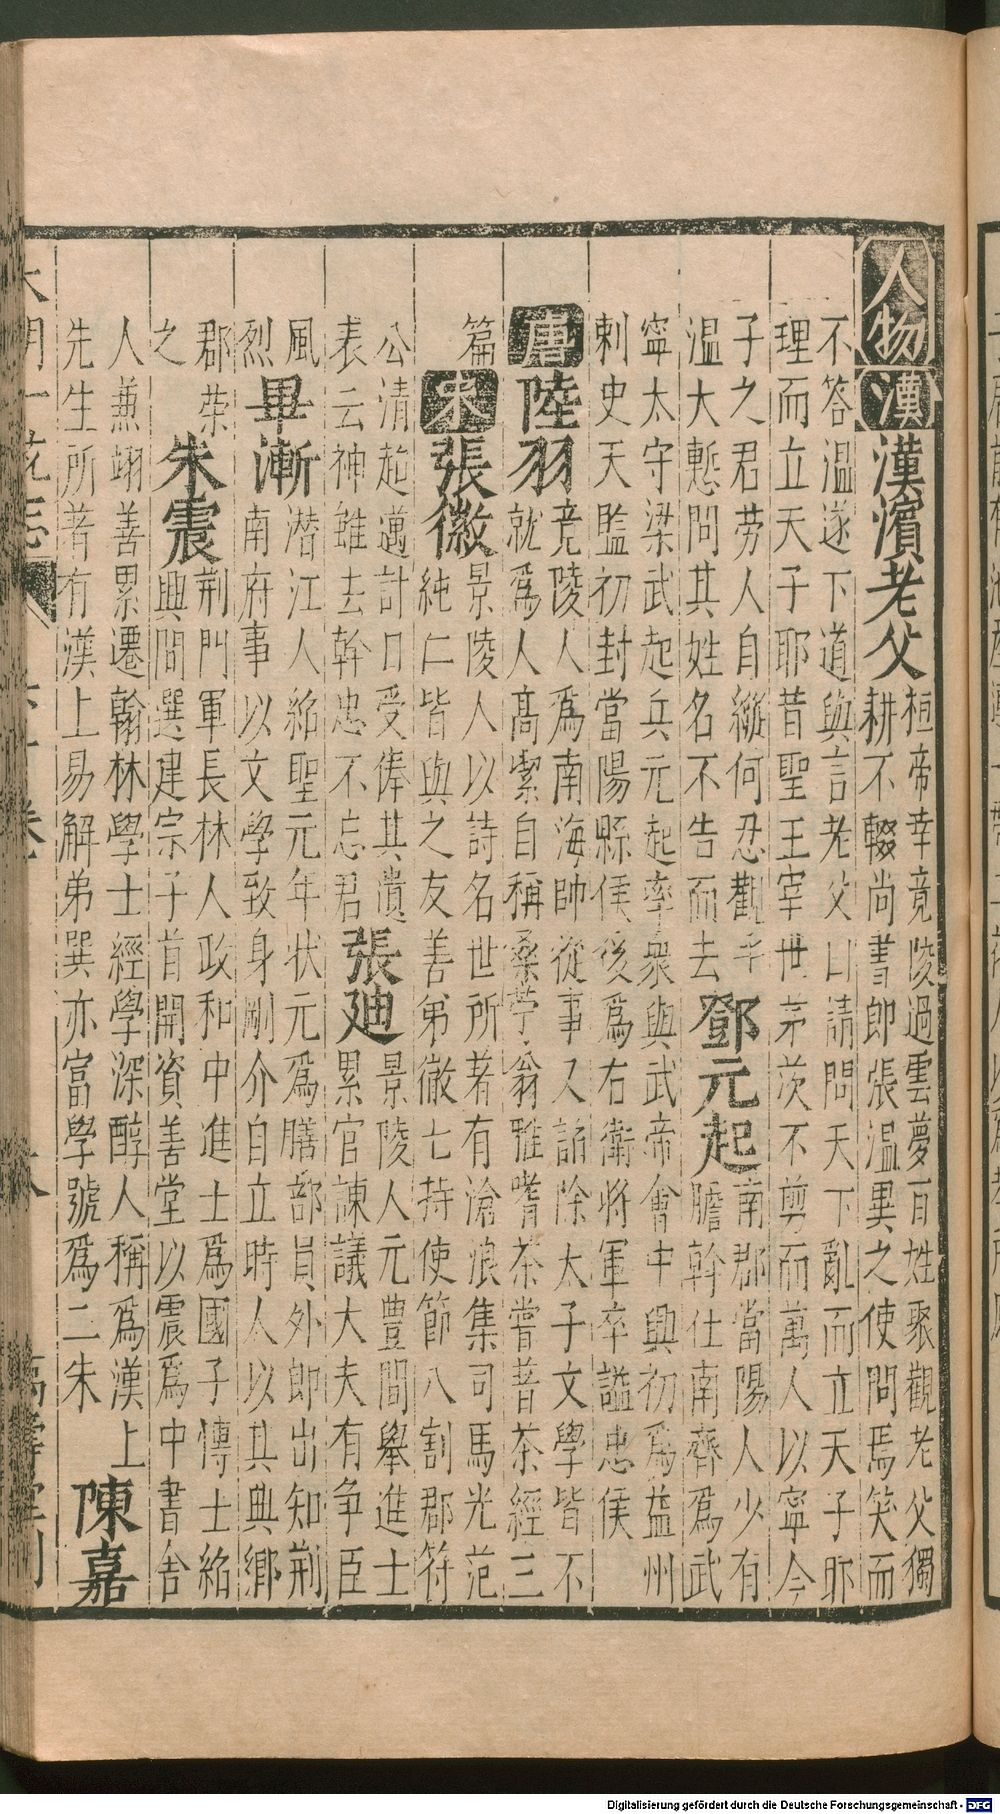 人物 漢 漢濱老父 桓帝幸竟陵過雲夢百姓聚觀老父獨
耕不輟尚書郎張温異之使問焉笑而
不答温遂下道與言老父曰請問天下亂而立天子耶
理而立天子耶昔聖王宰世茅茨不剪而萬人以寧今
子之君劳人自縱何忍觀乎 鄧元起 南郡當陽人少有
温大慙問其姓名不告而去 膽幹仕南齊爲武
寧太守梁武起兵元起率衆與武帝會中興初爲益州
刺史天監初封當陽縣侯後爲右衛將軍卒謚忠侯
唐 陸羽 竟陵人爲南海帥從事又詔除太子文學皆不
就爲人高潔自稱桑苧翁雅嗜茶嘗著茶經三
篇
宋 張徽 景陵人以詩名世所著有滄浪集司馬光范
純仁皆與之友善弟徹七持使節八割郡符
公清起邁計口受俸其遺 張廸 景陵人元豊間舉進士
表云神雖去幹忠不忘君 累官諫議大夫有争臣
風 畢漸 潜江人紹聖元年状元爲膳部員外郎出知荆
烈 南府事以文學致身剛介自立時人以其典鄉
郡荣 朱震 荆門軍長林人政和中進士爲國子博士紹
之 興間選建宗子首開資善堂以震爲中書舍
人兼翊善累遷翰林學士經學深醇人稱爲漢上
先生所著有漢上易解弟巽亦富學號爲二朱 陳嘉
大明一統志 卷
Digitalisierung gefördert durch die Deutsche Forschungsgemeinschaft - DFG